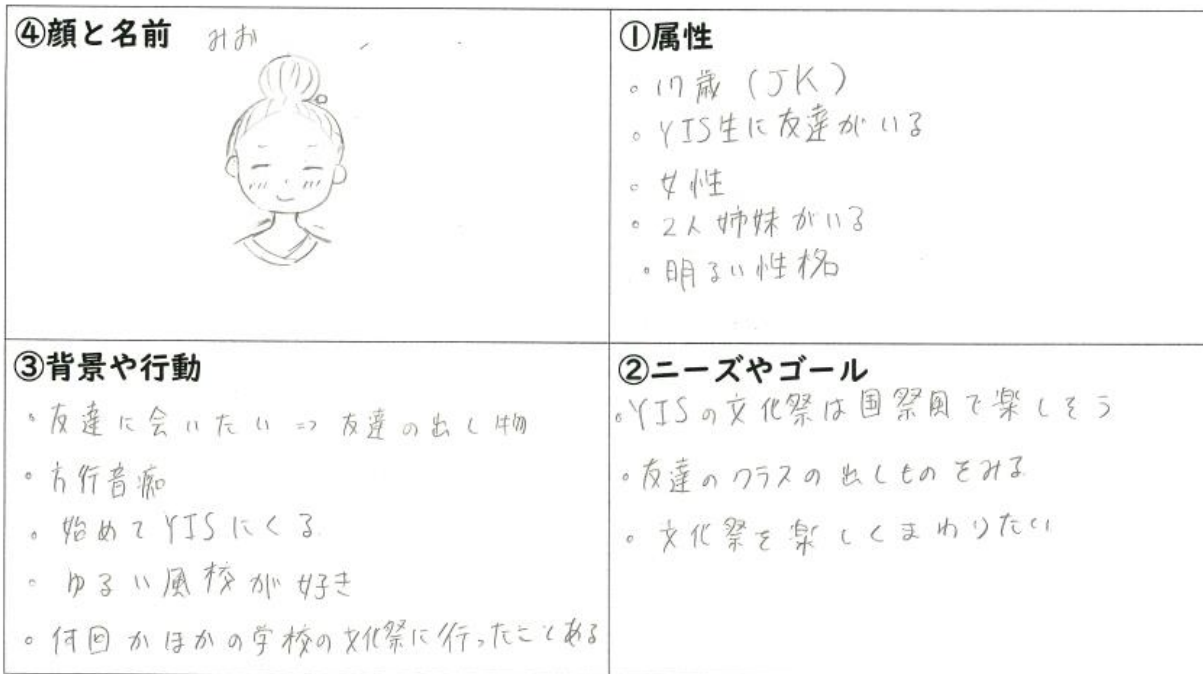 ④顔と名前 みお
①属性
・17歳(JK)
・YIS生に友達がいる
・女性
・2人姉妹がいる
・明るい性格
③背景や行動
・友達に会いたい⇒友達の出し物
・方行音痴
・始めてYISにくる
・ゆるい風校が好き
・何回かほかの学校の文化祭に行ったことある
②ニーズやゴール
・YISの文化祭は国祭風で楽しそう
・友達のクラスの出しものをみる
・文化祭を楽しくまわりたい